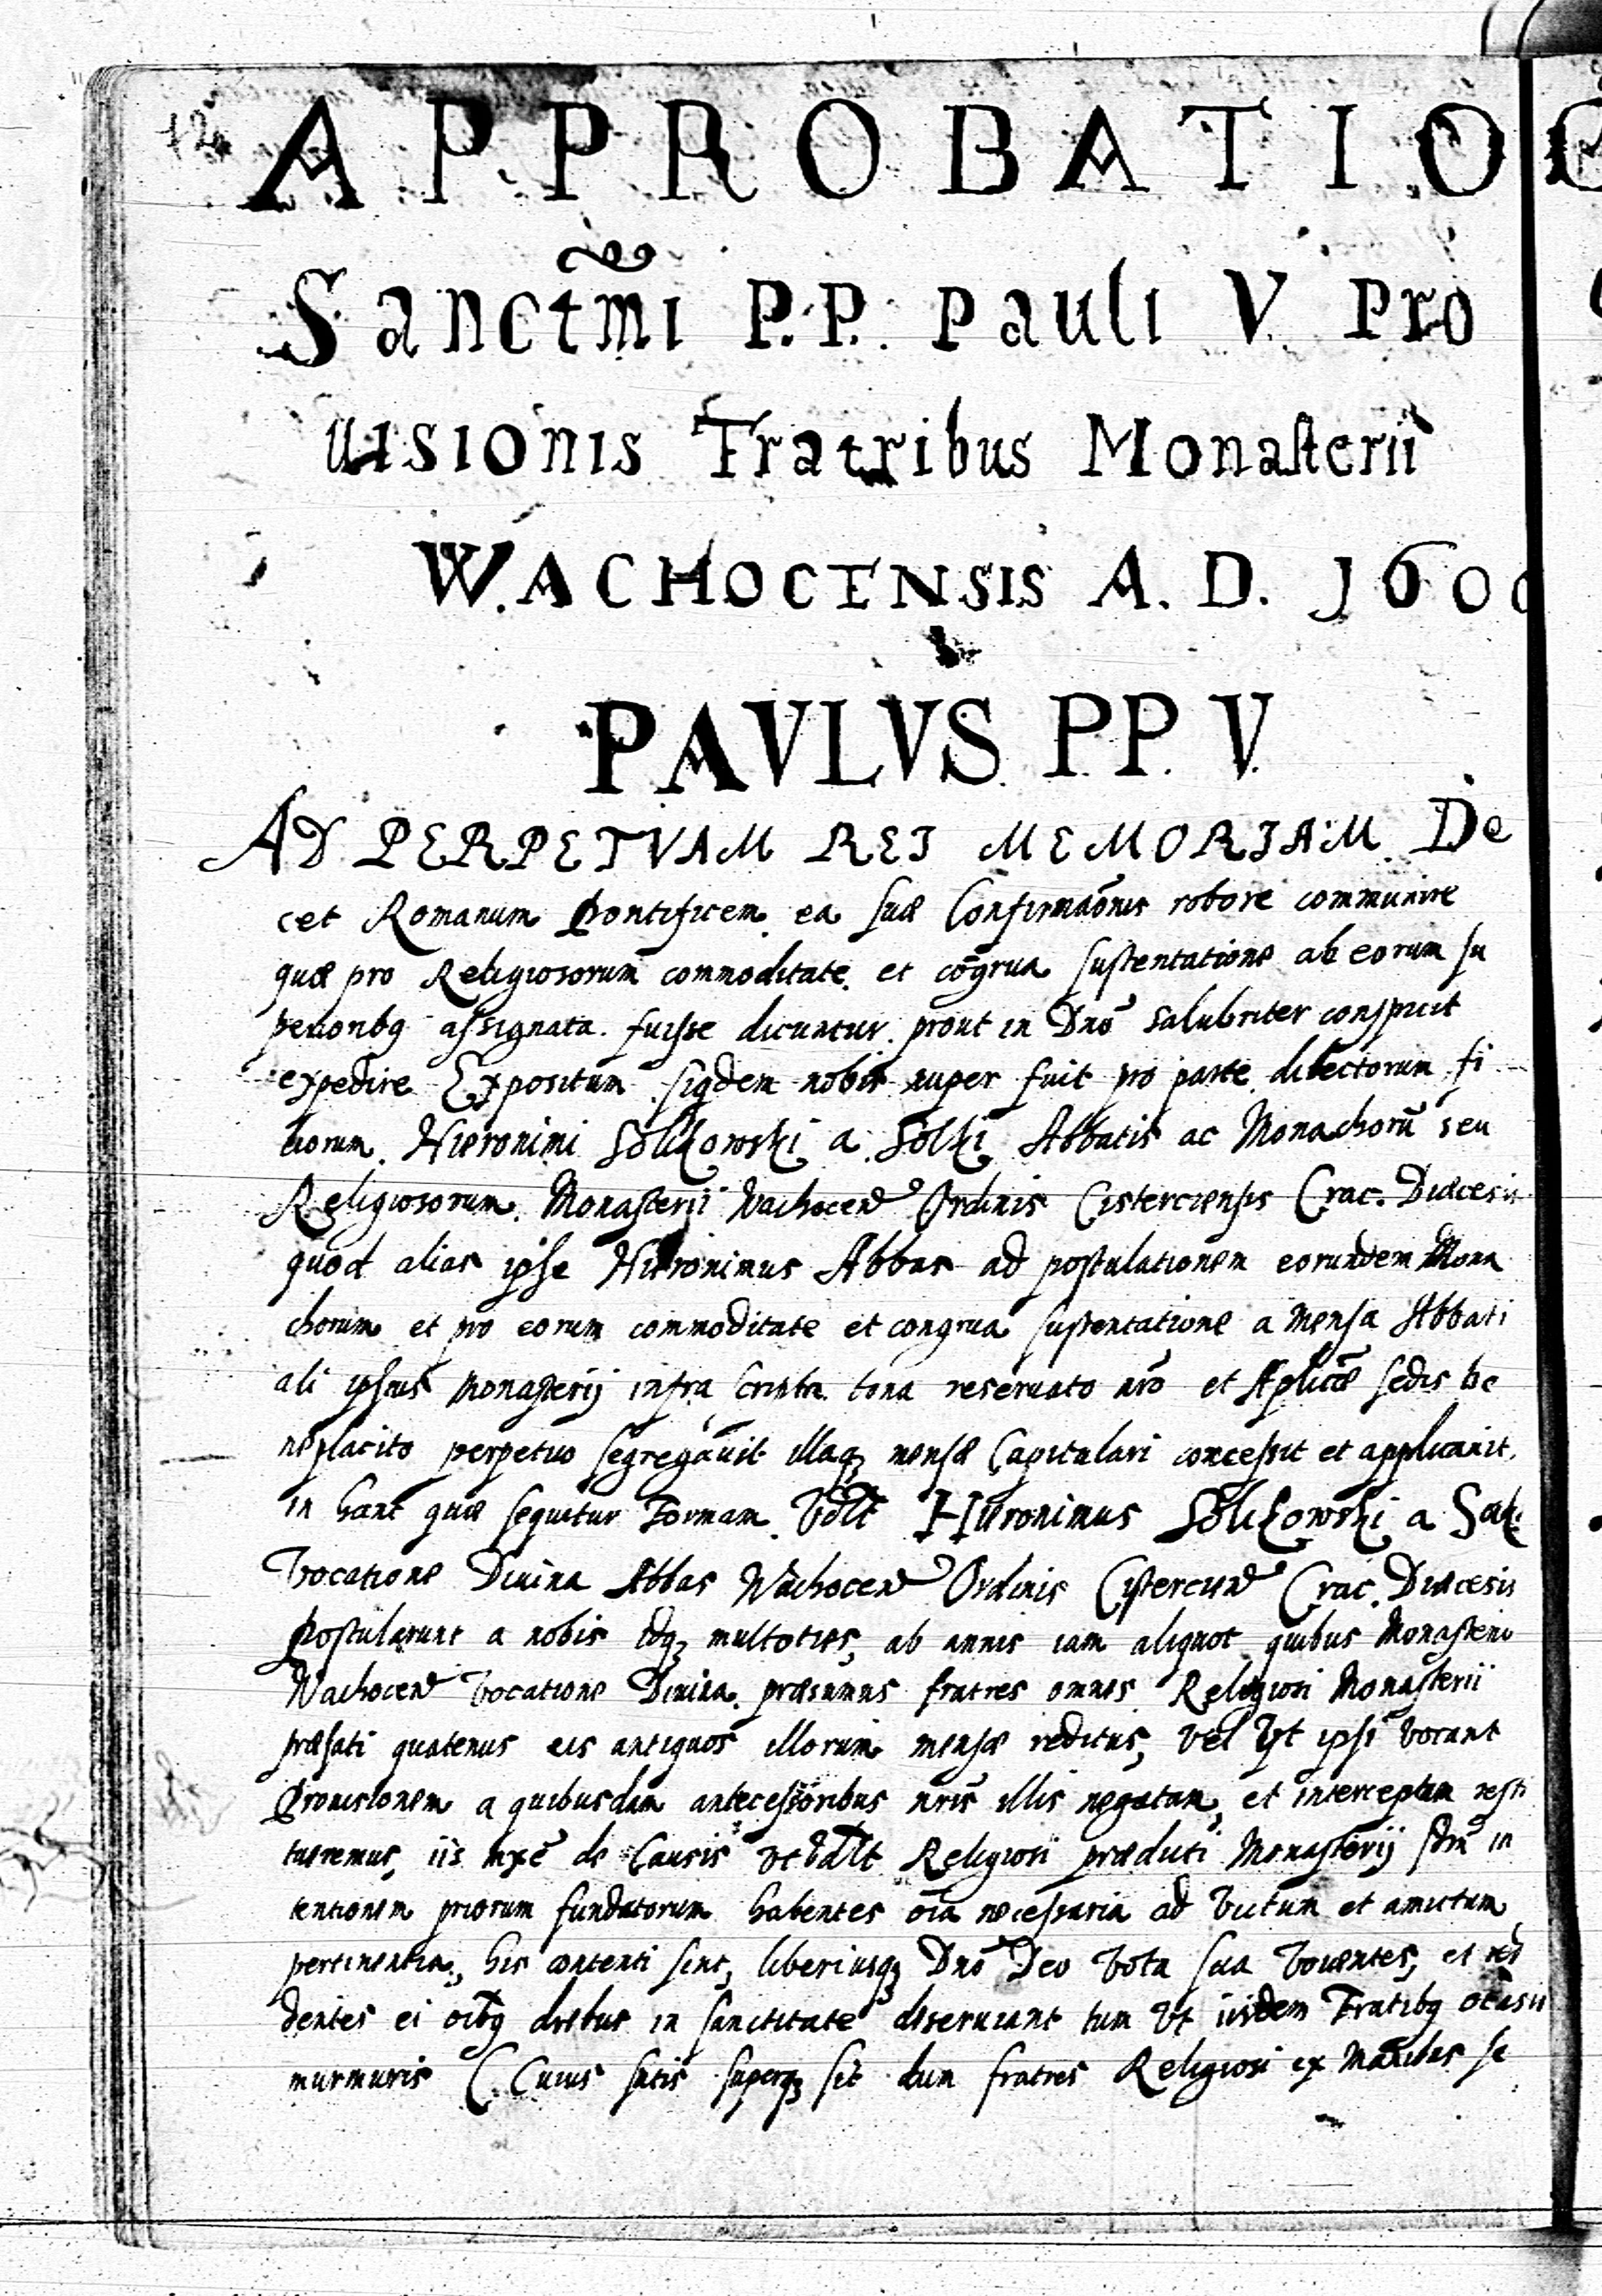 12
APPROBATIO
Sanctm̃i P.P. Pauli V. Pro
uisionis Fratribus Monasterii
WACHOCENSIS A. D. 160
PAVLVS P.P. V.
AD PERPETVAM REI MEMORIAM. De
cet Romanum Pontificem ea suæ Confirmaõnis robore communire
quæ pro Religiosorum commoditate et cõgrua sustentatione ab eorum su
perioribꝗ assignata fuisse dicuntur prout in Dnõ salubriter conspicit
expedire Expositum siqdem nobis nuper fuit pro parte dilectorum fi
liorum Hieronimi Solikowski a Solki Abbatis ac Monachorũ seu
Religiosorum Monasterii Wachocen Ordinis Cisterciensis Crac. Diæcesis
quod alias ipse Hieronimus Abbas ad postulationem eorundem Mona
chorum et pro eorum commoditate et congrua sustentatione a Mensa Abbati
ali ipsius Monasterij infra scripta bona reseruato nrõ et Aplicæ sedis be
neplacito perpetuo segregauit illaqꝫ mensæ Capitulari concessit et applicauit
in hanc quæ sequitur Formam. Vdlt Hieronimus Solikowski a Solki
Vocatione Diuina Abbas Wachocen Ordinis Cistercien Crac. Diæcesis
Postularunt a nobis idqꝫ multoties, ab annis iam aliquot quibus Monasterio
Wachocen Vocatione Diuina præsumus fratres omnes Religiosi Monasterii
præfati quatenus eis antiquos illorum mensæ reditus, vel Vt ipsi vocant
Prouisionem a quibusdam antecessoribus nris illis negatam, et interceptam resti
tueremus, iis mxẽ de Causis vt Vdlt Religiosi prædicti Monasterij sdm in
tentionem priorum fundatorum habentes oĩa necessaria ad victum et amictum
pertinentia, his contenti sint, liberiusqꝫ Dnõ Deo Vota sua Vouentes, et red
dentes ei oĩbꝗ diebus in sanctitate deseruiant tum Vt iisdem Fratibꝗ ocasii
murmuris (Cuius satis superqꝫ sit dum fratres Religiosi ex Manibus se